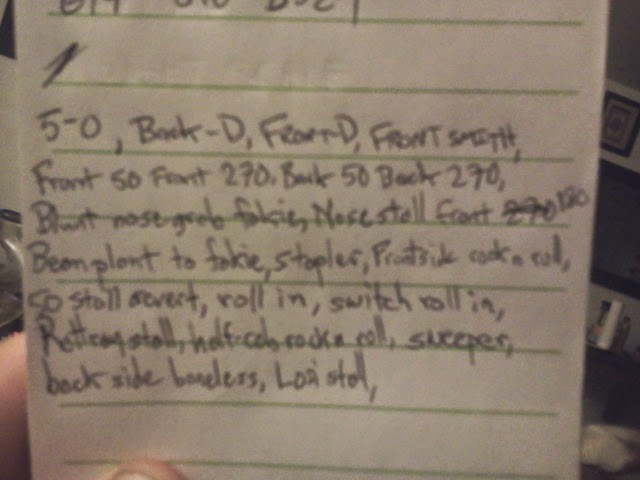 5-0, Back-D, Front-D, Front smith,
Front 50 Front 270. Back 50 Back 270,
Blunt nose grab fakie, Nose stall Front 270 180
Beanplant to fakie, stapler, Frontside rock n roll,
50 stall revert, roll in, switch roll in,
stall, half-cab rock n roll, sweeper,
back side boneless, Losi stal,